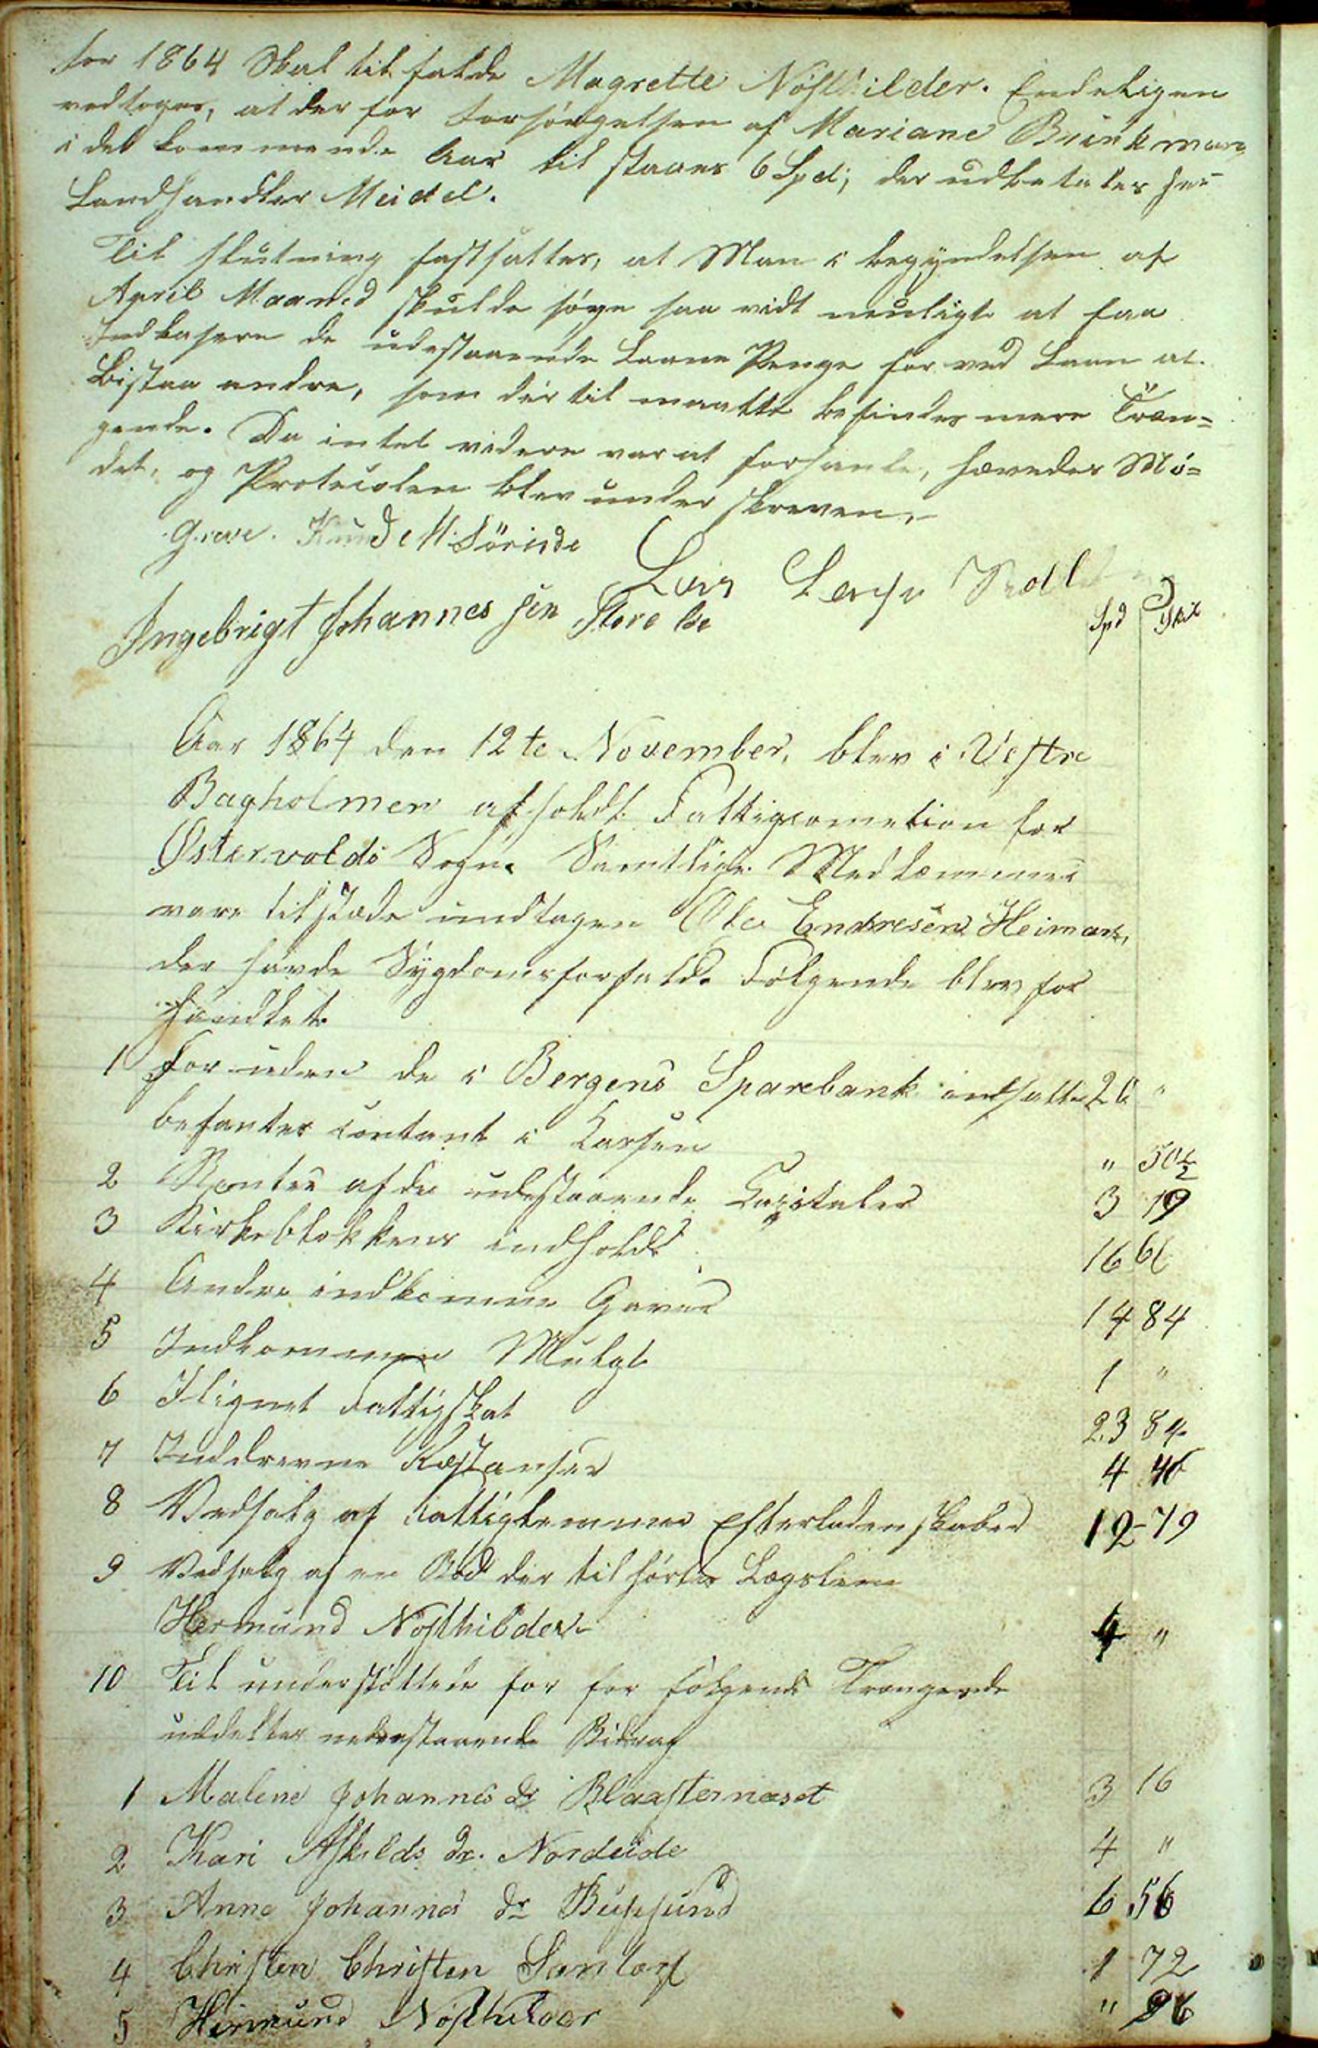 for 1864 Skal tilfalde Magrette Nøsthilder. Endeligen
vedtoges, at der for Forsørgelsen af Mariane Brinkmann
i det kommende Aar tilstaaes 6 Spd; der udbetales
Landhandler Meidel.
Til Slutning fastsattes, at Man i begyndelsen af
April Maaned skulde søge saa vidt muligt at faa
Indkasere de udestaaende Laane Penge for ved Laan at
bistaa andre, som dertil maatte befindes mere Træn=
gende. Da intet videre var at forhandle, hævedes Mø=
det, og Protocolen blev underskreven.
Greve. Knud M. Söriide
Lars Larsen
Ingebrigt Johannessen Storebø
Spd Skil
Aar 1864 den 12te November, blev i Vestre
Bagholmen afholdt Fattigcomition for
Østervolds Sogn. Samtlige Medlemmer
vare tilstæde undtagen Ole Endresen Heimark,
der havde Sygdomsforfald. Følgende blev for
handlet.
1 Foruden de i Bergens Sparebank indsatte 26 "
befantes contant i Kassen " 50½
2 Renter af de udestaaende Capitaler 3 19
3 Kirkeblokkens indhold 16 61
4 Andre indkomne Gaver 14 84
5 Indkommen Mulgt 1 "
6 Ilignet Fattigskat 23 84
7 Inddrevne Restanser 4 46
8 Vedsalg af Fattiglemmer Efterladenskaber 12-79
9 Vedsalg af en Bod der tilhørte Lægslem
Hermund Nøsthilder 4 "
10 Til understøttelse for følgende Trængende
uddeltes nedenstaaende Bidrag
1 Malene Johannes dr Blaasternæset 3 16
2 Kari Askilds dr. Nordeide 4 "
3 Anne Johannes dr Buhsund 6 56
4 Christen Christen Santorf 1 72
5 Hermund Nøsthilder " 96